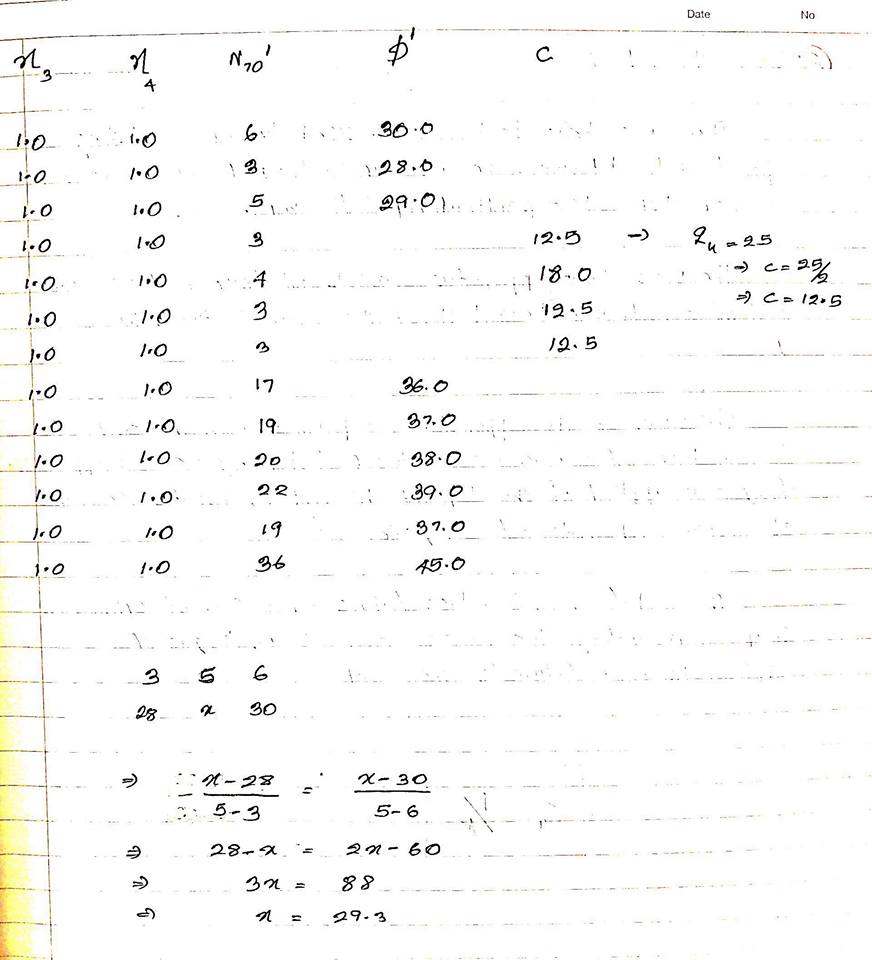 Date No
η₃ η₄ N₇₀' φ' C
1.0 1.0 6 30.0
1.0 1.0 3 28.0
1.0 1.0 5 29.0
1.0 1.0 3 12.5 → q_u = 25
1.0 1.0 4 18.0 ⇒ C = 25/2
1.0 1.0 3 12.5 ⇒ C = 12.5
1.0 1.0 3 12.5
1.0 1.0 17 36.0
1.0 1.0 19 37.0
1.0 1.0 20 38.0
1.0 1.0 22 39.0
1.0 1.0 19 37.0
1.0 1.0 36 45.0
3 5 6
28 x 30
⇒ (x-28)/(5-3) = (x-30)/(5-6)
⇒ 28-x = 2x-60
⇒ 3x = 88
⇒ x = 29.3